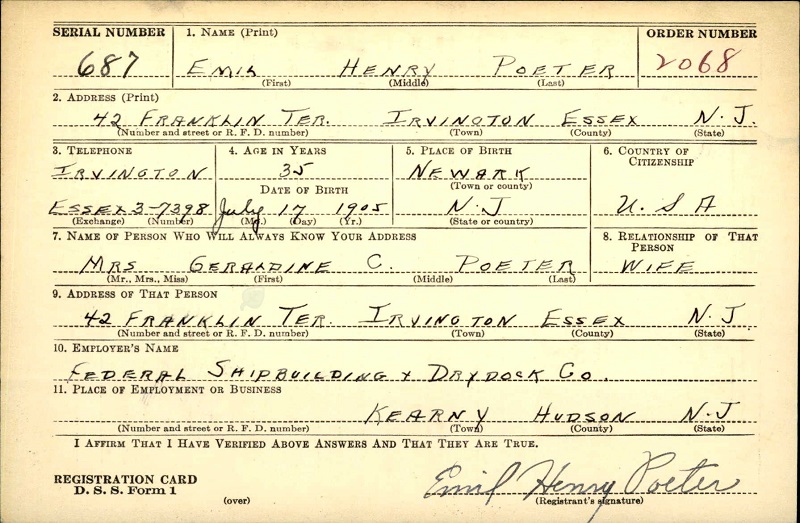 SERIAL NUMBER 1. NAME (Print) ORDER NUMBER
687 EMIL HENRY POETER 2068
(First) (Middle) (Last)
2. ADDRESS (Print)
42 FRANKLIN TER. IRVINGTON ESSEX N.J.
(Number and street or R. F. D. number) (Town) (County) (State)
3. TELEPHONE 4. AGE IN YEARS 5. PLACE OF BIRTH 6. COUNTRY OF CITIZENSHIP
IRVINGTON 35 NEWARK
DATE OF BIRTH (Town or county)
ESSEX 3-7398 July 17 1905 N J U. S A
(Exchange) (Number) (Mo.) (Day) (Yr.) (State or country)
7. NAME OF PERSON WHO WILL ALWAYS KNOW YOUR ADDRESS 8. RELATIONSHIP OF THAT PERSON
MRS GERALDINE C. POETER WIFE
(Mr., Mrs., Miss) (First) (Middle) (Last)
9. ADDRESS OF THAT PERSON
42 FRANKLIN TER. IRVINGTON ESSEX N.J.
(Number and street or R. F. D. number) (Town) (County) (State)
10. EMPLOYER'S NAME
FEDERAL SHIPBUILDING & DRYDOCK CO.
11. PLACE OF EMPLOYMENT OR BUSINESS
KEARNY HUDSON N.J
(Number and street or R. F. D. number) (Town) (County) (State)
I AFFIRM THAT I HAVE VERIFIED ABOVE ANSWERS AND THAT THEY ARE TRUE.
REGISTRATION CARD
D. S. S. Form 1 (over)
Emil Henry Poeter
(Registrant's signature)